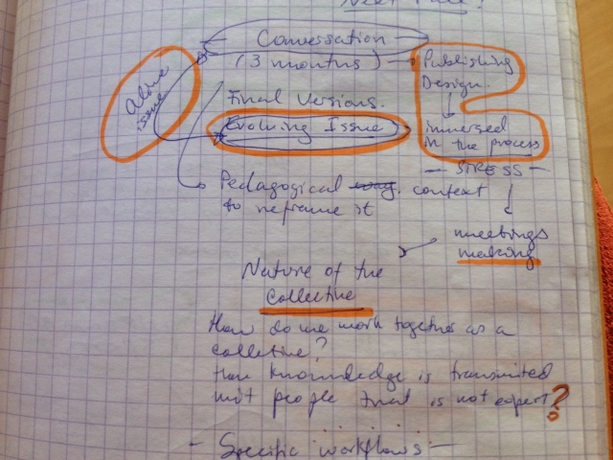 Conversation
(3 months)
Publishing
Design.
alive
issue
Final Versions.
Evolving Issue
immersed
in the process
- STRESS -
Pedagogical context
to reframe it
meetings
making
Nature of the
Collective
How do we work together as a
colletive?
How knowledge is transmited
wit people that is not expert?
- Specific workflows -